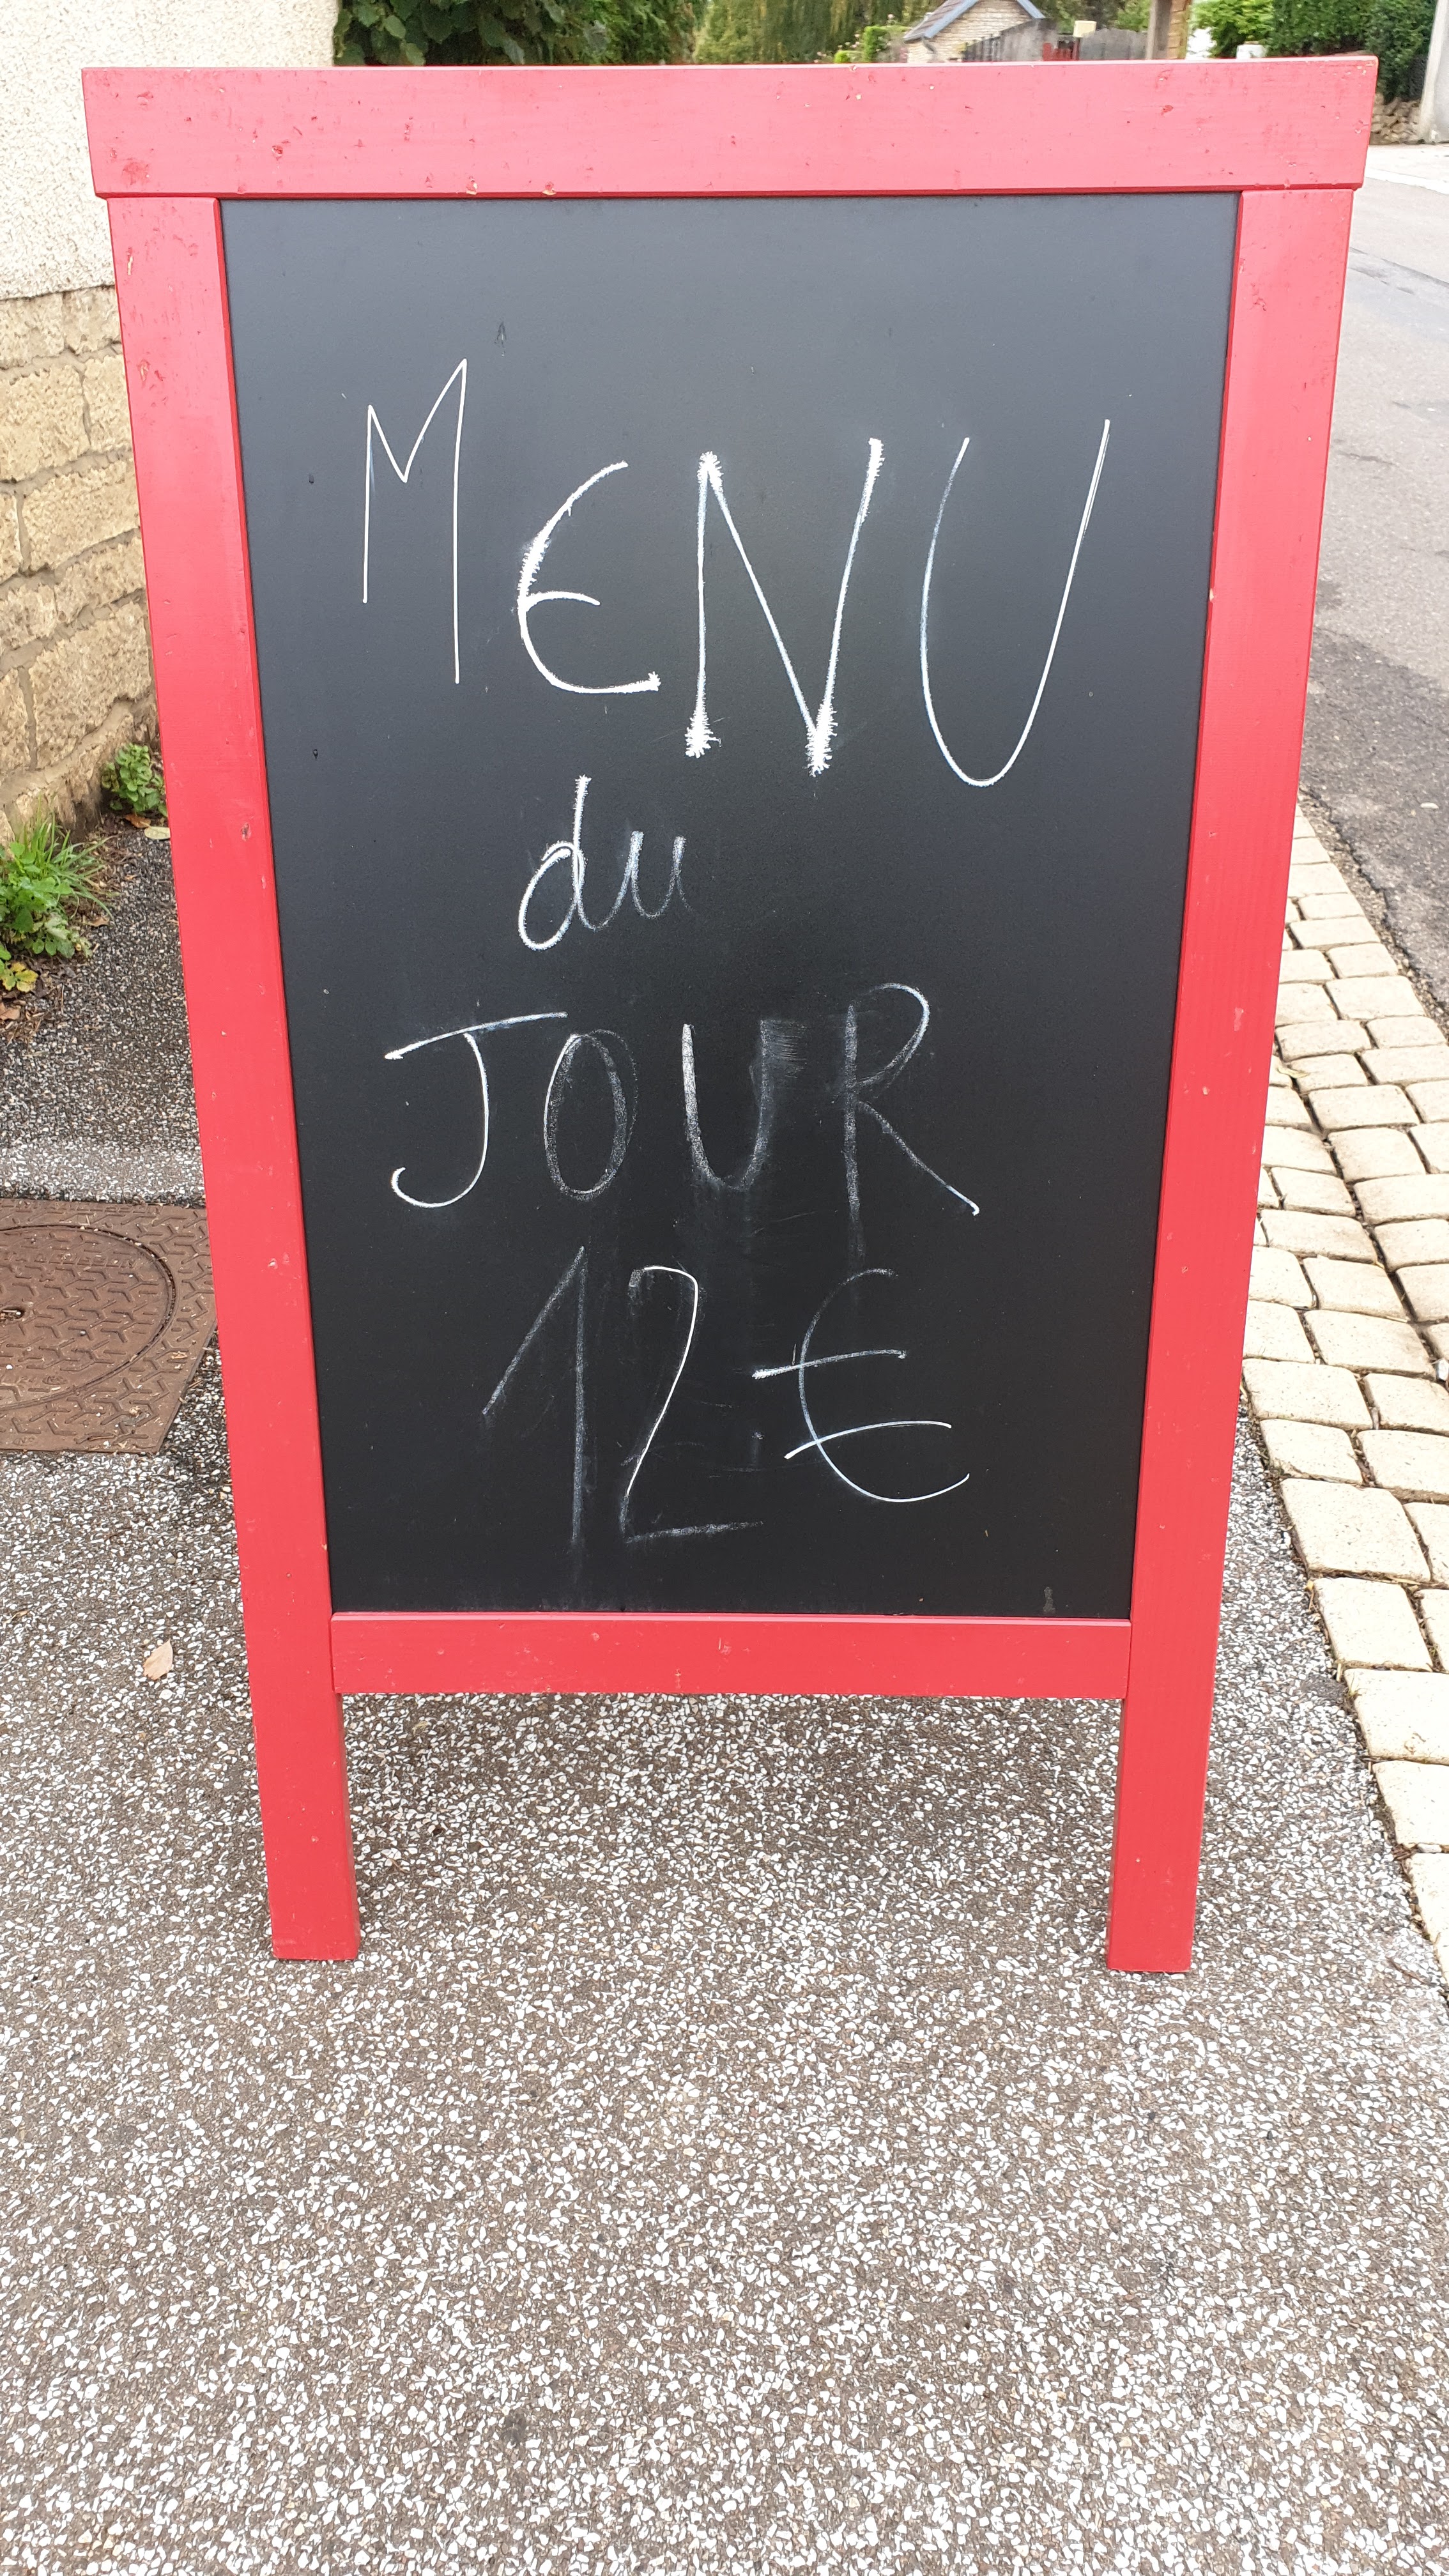 MENU
du
JOUR
12€